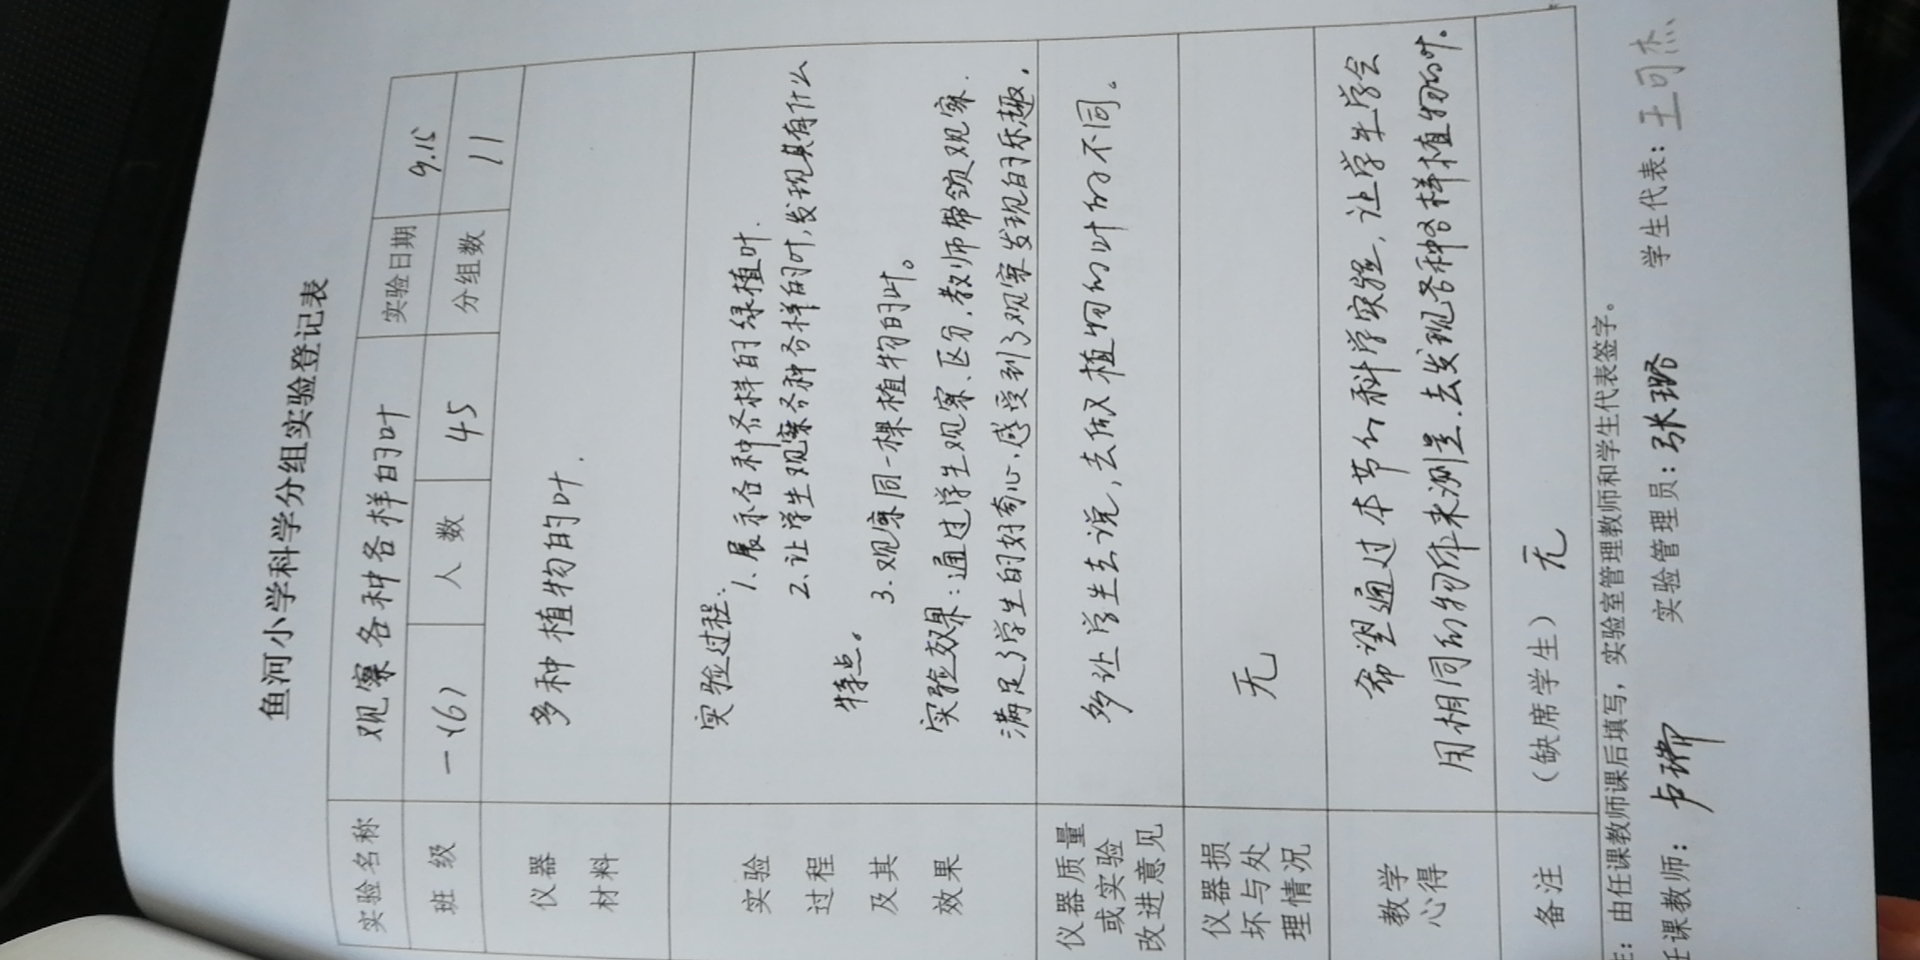 鱼河小学科学分组实验登记表
实验名称 观察各种各样的叶 实验日期 9.15
班 级 一(6) 人 数 45 分组数 11
仪器材料 多种植物的叶.
实验过程及其效果
实验过程:
1.展示各种各样的绿植叶.
2.让学生观察各种各样的叶,发现具有什么
特点。
3.观察同一棵植物的叶。
实验效果:通过学生观察、区分,教师带领观察.
满足了学生的好奇心,感受到了观察发现的乐趣.
仪器质量或实验改进意见 多让学生去说,去做植物的叶的不同。
仪器损坏与处理情况 无
教学心得 希望通过本节的科学实验,让学生学会
用相同的物体来测量.去发现各种各样植物的叶.
备注 (缺席学生) 无
：由任课教师课后填写，实验室管理教师和学生代表签字。
任课教师： 卢 实验管理员：张璐 学生代表：王可杰